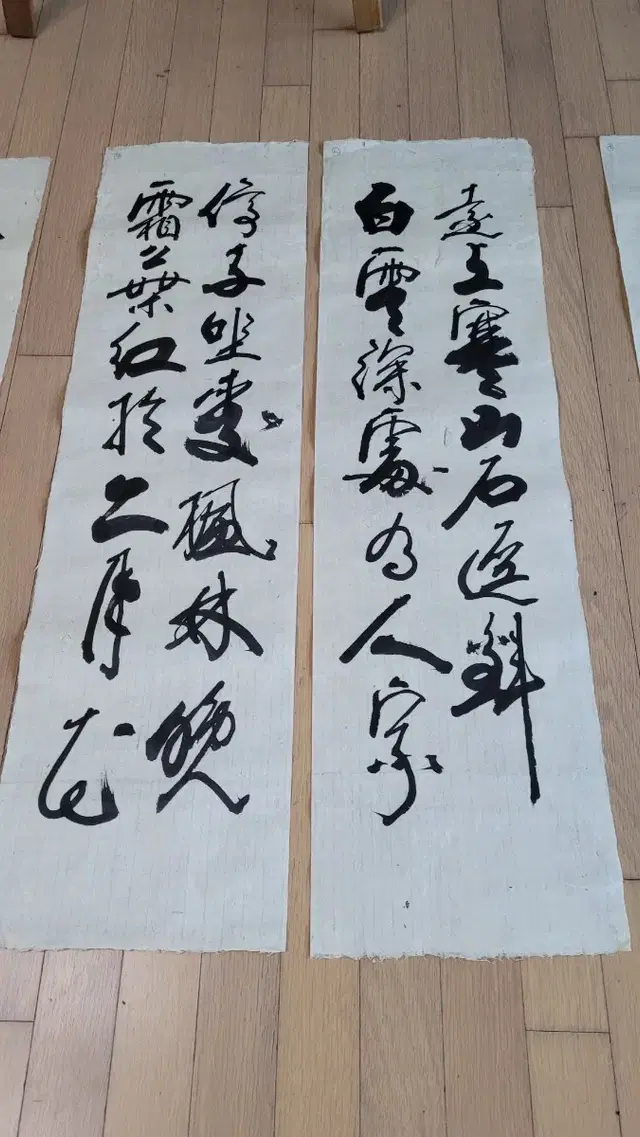 遠上寒山石逕斜
白雲深處有人家
停車坐愛楓林晚
霜葉紅於二月花